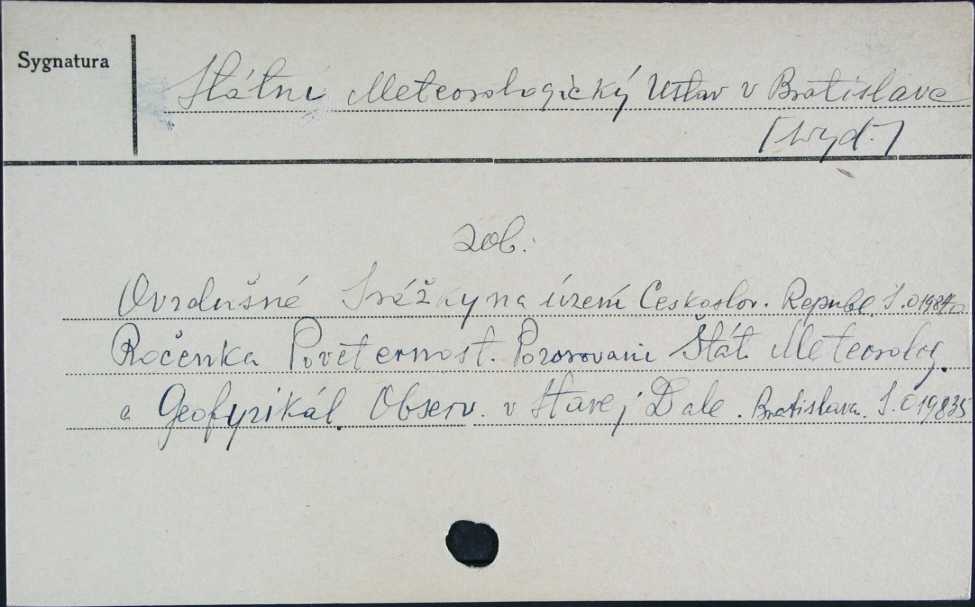 Sygnatura
Státni Meteorologický Ustav v Bratislave
[wyd.]
zob.
Ovzdušné Srážky na území Ceskoslov. Republ. S.O
Ročenka Poveternost. Pozorovani Štát. Meteorolog.
a Geofyzikál. Observ. v Starej Dale. Bratislava. S.O 19835